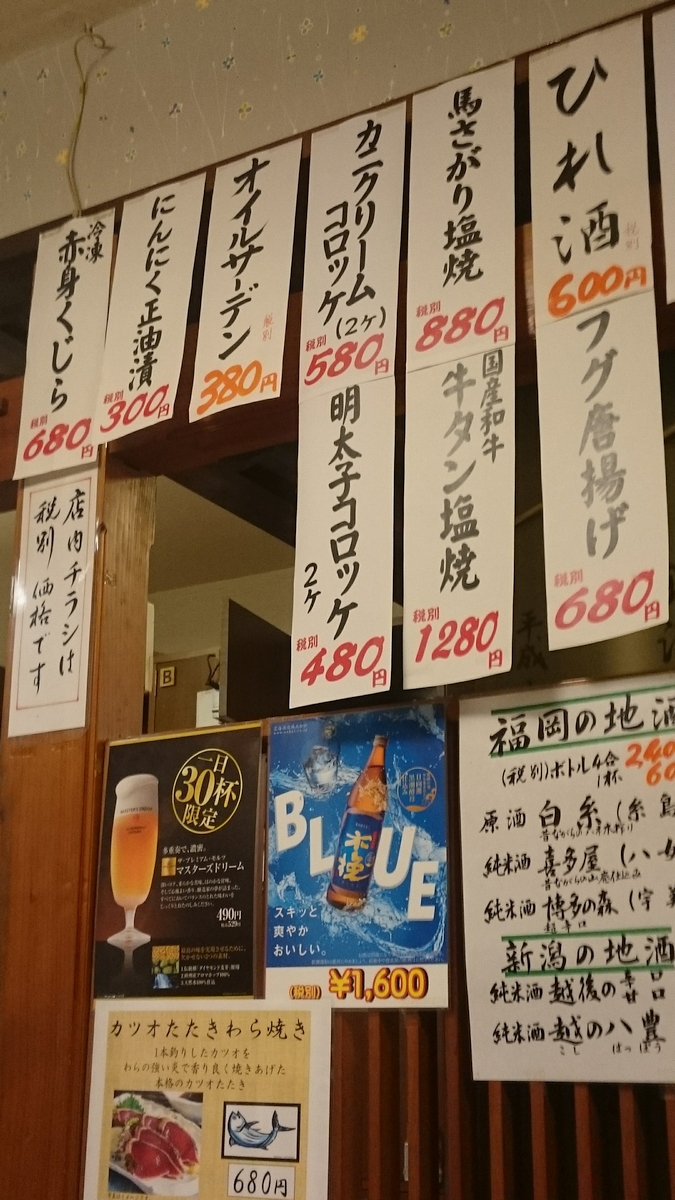 ひれ酒
税別
600円
フグ唐揚げ
税別
680円
馬さがり塩焼
税別
880円
国産和牛
牛タン塩焼
税別
1280円
カニクリーム
コロッケ
(2ケ)
税別
580円
明太子コロッケ
2ケ
税別
480円
オイルサーデン
税別
380円
にんにく正油漬
税別
300円
冷凍
赤身くじら
税別
680円
店内チラシは
税別価格です
B
一日
30杯
限定
多重奏で、濃密。
ザ・プレミアム・モルツ
マスターズドリーム
490円
税込529円
BLUE
木挽
スキッと
爽やか
おいしい。
(税別) ¥1,600
福岡の地酒
(税別)ボトル4合 240
1杯 60
原酒 白糸 (糸島
純米酒 喜多屋 (八女
純米酒 博多の森 (宇美
超辛口
新潟の地酒
純米酒 越後の 辛口
甘口
純米酒 越の八豊
こし はっぽう
カツオたたきわら焼き
1本釣りしたカツオを
わらの強い炎で香り良く焼きあげた
本格のカツオたたき
680円